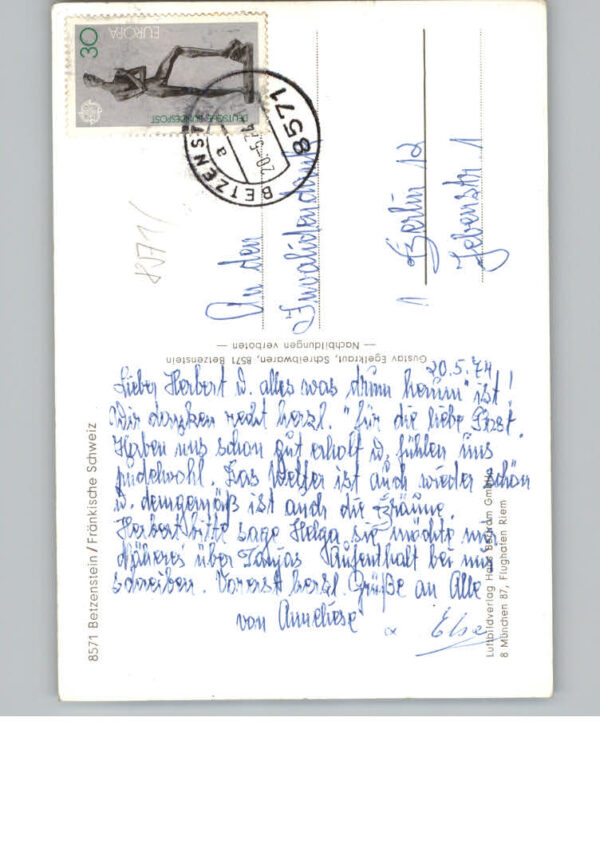 30
EUROPA
DEUTSCHE BUNDESPOST
8571
BETZENSTEIN
a
20.-5.74
8571/
An den
Invalidendank
1 Berlin 12
Jebenstr. 1
Gustav Egelkraut, Schreibwaren, 8571 Betzenstein
— Nachbildungen verboten —
20.5.74
Lieber Herbert u. alles was drum herum" ist!
Wir danken recht herzl. für die liebe Post.
Haben uns schon gut erholt u. fühlen uns
pudelwohl. Das Wetter ist auch wieder schön
u. demgemäß ist auch die Bräune.
Herbert bitte sage Helga sie möchte mir
Näheres über Tanjas Aufenthalt bei mir
schreiben. Vorerst herzl. Grüße an Alle
von Anneliese
Else
8571 Betzenstein/Fränkische Schweiz
Luftbildverlag Hans Bertram GmbH
8 München 87, Flughafen Riem